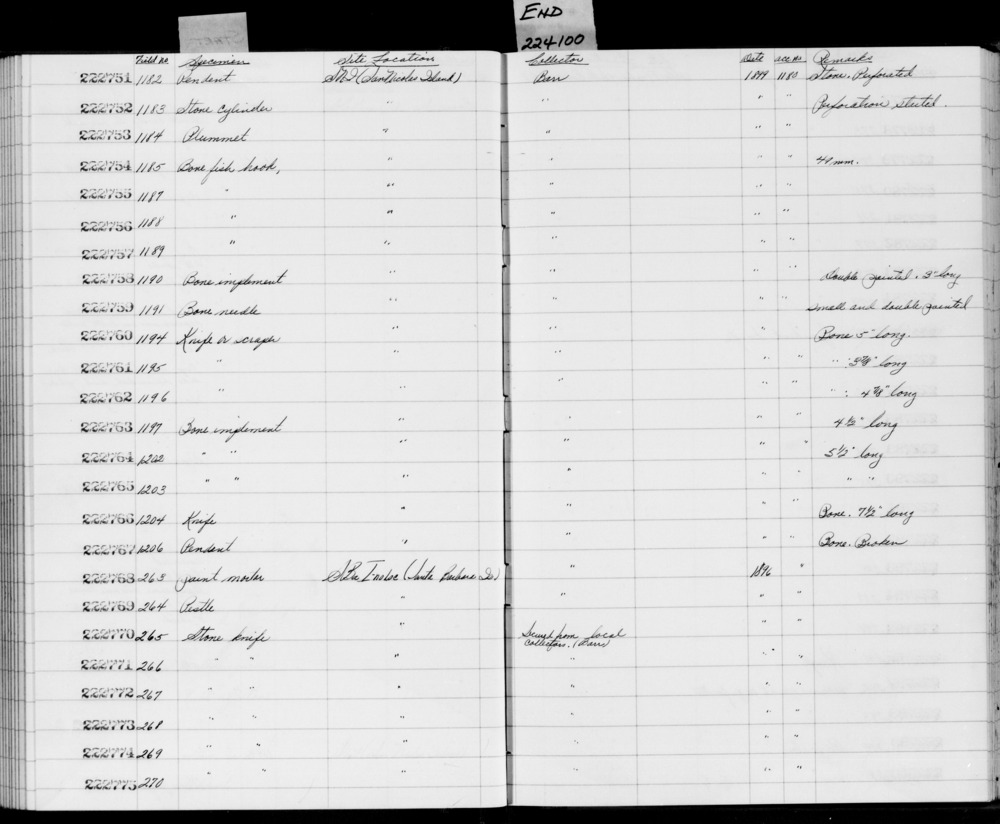 END
224100
Field no. Specimen Site Location Collector Date acc no Remarks
222751 1182 Pendent SNI (San Nicolas Island) Barr 1899 1180 Stone. Perforated
222752 1183 Stone Cylinder " " " " Perforation started.
222753 1184 Plummet " " " "
222754 1185 Bone fish hook, " " " " 49 mm.
222755 1187 " " " " "
222756 1188 " " " " "
222757 1189 " " " " "
222758 1190 Bone implement " " " " Double pointed. 3" long
222759 1191 Bone needle " " " " small and double pointed
222760 1194 Knife or scraper " " " " Bone 5" long.
222761 1195 " " " " " " : 3 7/8" long
222762 1196 " " " " " " : 4 7/8" long
222763 1197 Bone implement " " " " 4 1/2" long
222764 1202 " " " " " " 5 1/2" long
222765 1203 " " " " " " " "
222766 1204 Knife " " " " Bone. 7 1/2" long
222767 1206 Pendent " " " " Bone. Broken
222768 263 paint morter (Santa Barbara Is) " 1896 "
222769 264 Pestle " " " "
222770 265 Stone knife " from local
collectors. (Barr) " "
222771 266 " " " " " "
222772 267 " " " " " "
222773 268 " " " " " "
222774 269 " " " " " "
222775 270 " " " " " "